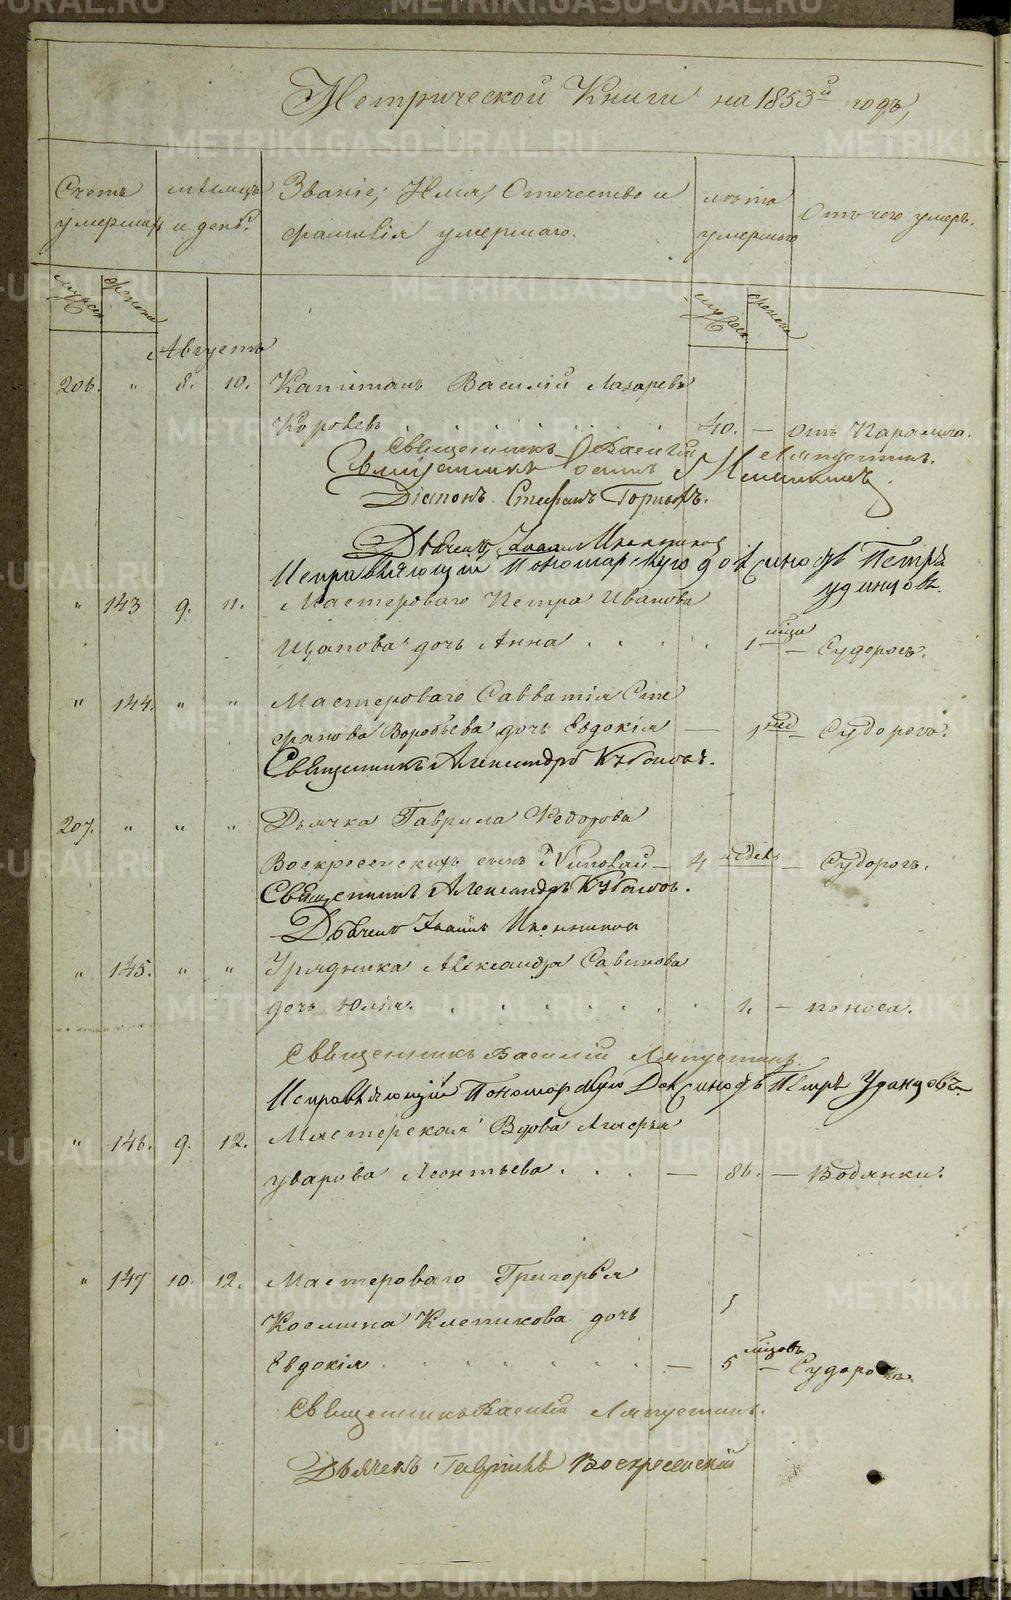 Метрической Книги на 1853й годъ,
Счетъ умершихъ
мѣсяцъ и день.
Званіе, Имя, Отечество и фамилія умершаго.
лѣта умершаго
Отъ чего умеръ.
мужеска женска
мужеска женска
Августъ
206. " 8. 10. Капитанъ Василій Лазаревъ
Королевъ 40. — Отъ Паралича.
Священникъ Василій Ляпустинъ.
Священникъ
Діаконъ Стефанъ
Дьячекъ Иконниковъ
Исправляющій Пономарскую дол Петръ
Удинцовъ.
" 143 9. 11. Мастероваго Петра Иванова
Щапова дочь Анна . . . . 1 — Судорогъ.
" 144. " " Мастероваго Савватія Сте
фанова Воробьева дочь Евдокія — 1 нед — Судорогъ.
Священникъ Александръ
207. " " " Дьячка Гаврила Федорова
Воскресенскихъ сынъ Николай — 4 недель — Судорогъ.
Священникъ Александръ
Дьячекъ Иконниковъ
" 145. " " Урядника Александра Савинова
дочь Юлія. . . . . . . . 1. — поноса.
Священникъ Василій Ляпустинъ
Исправляющій Пономарскую Дол Петръ Удинцовъ.
" 146. 9. 12. Мастерская Вдова
Уварова Леонтьева. . . . — 86. — Водянки.
" 147 10. 12. Мастероваго Григорья
Козмина Клепикова дочь 1
Евдокія . . . . . . . — 5 — Судорогъ.
Священникъ Василій Ляпустинъ.
Дьячекъ Гаврилъ Воскресенскій
METRIKI.GASO-URAL.RU